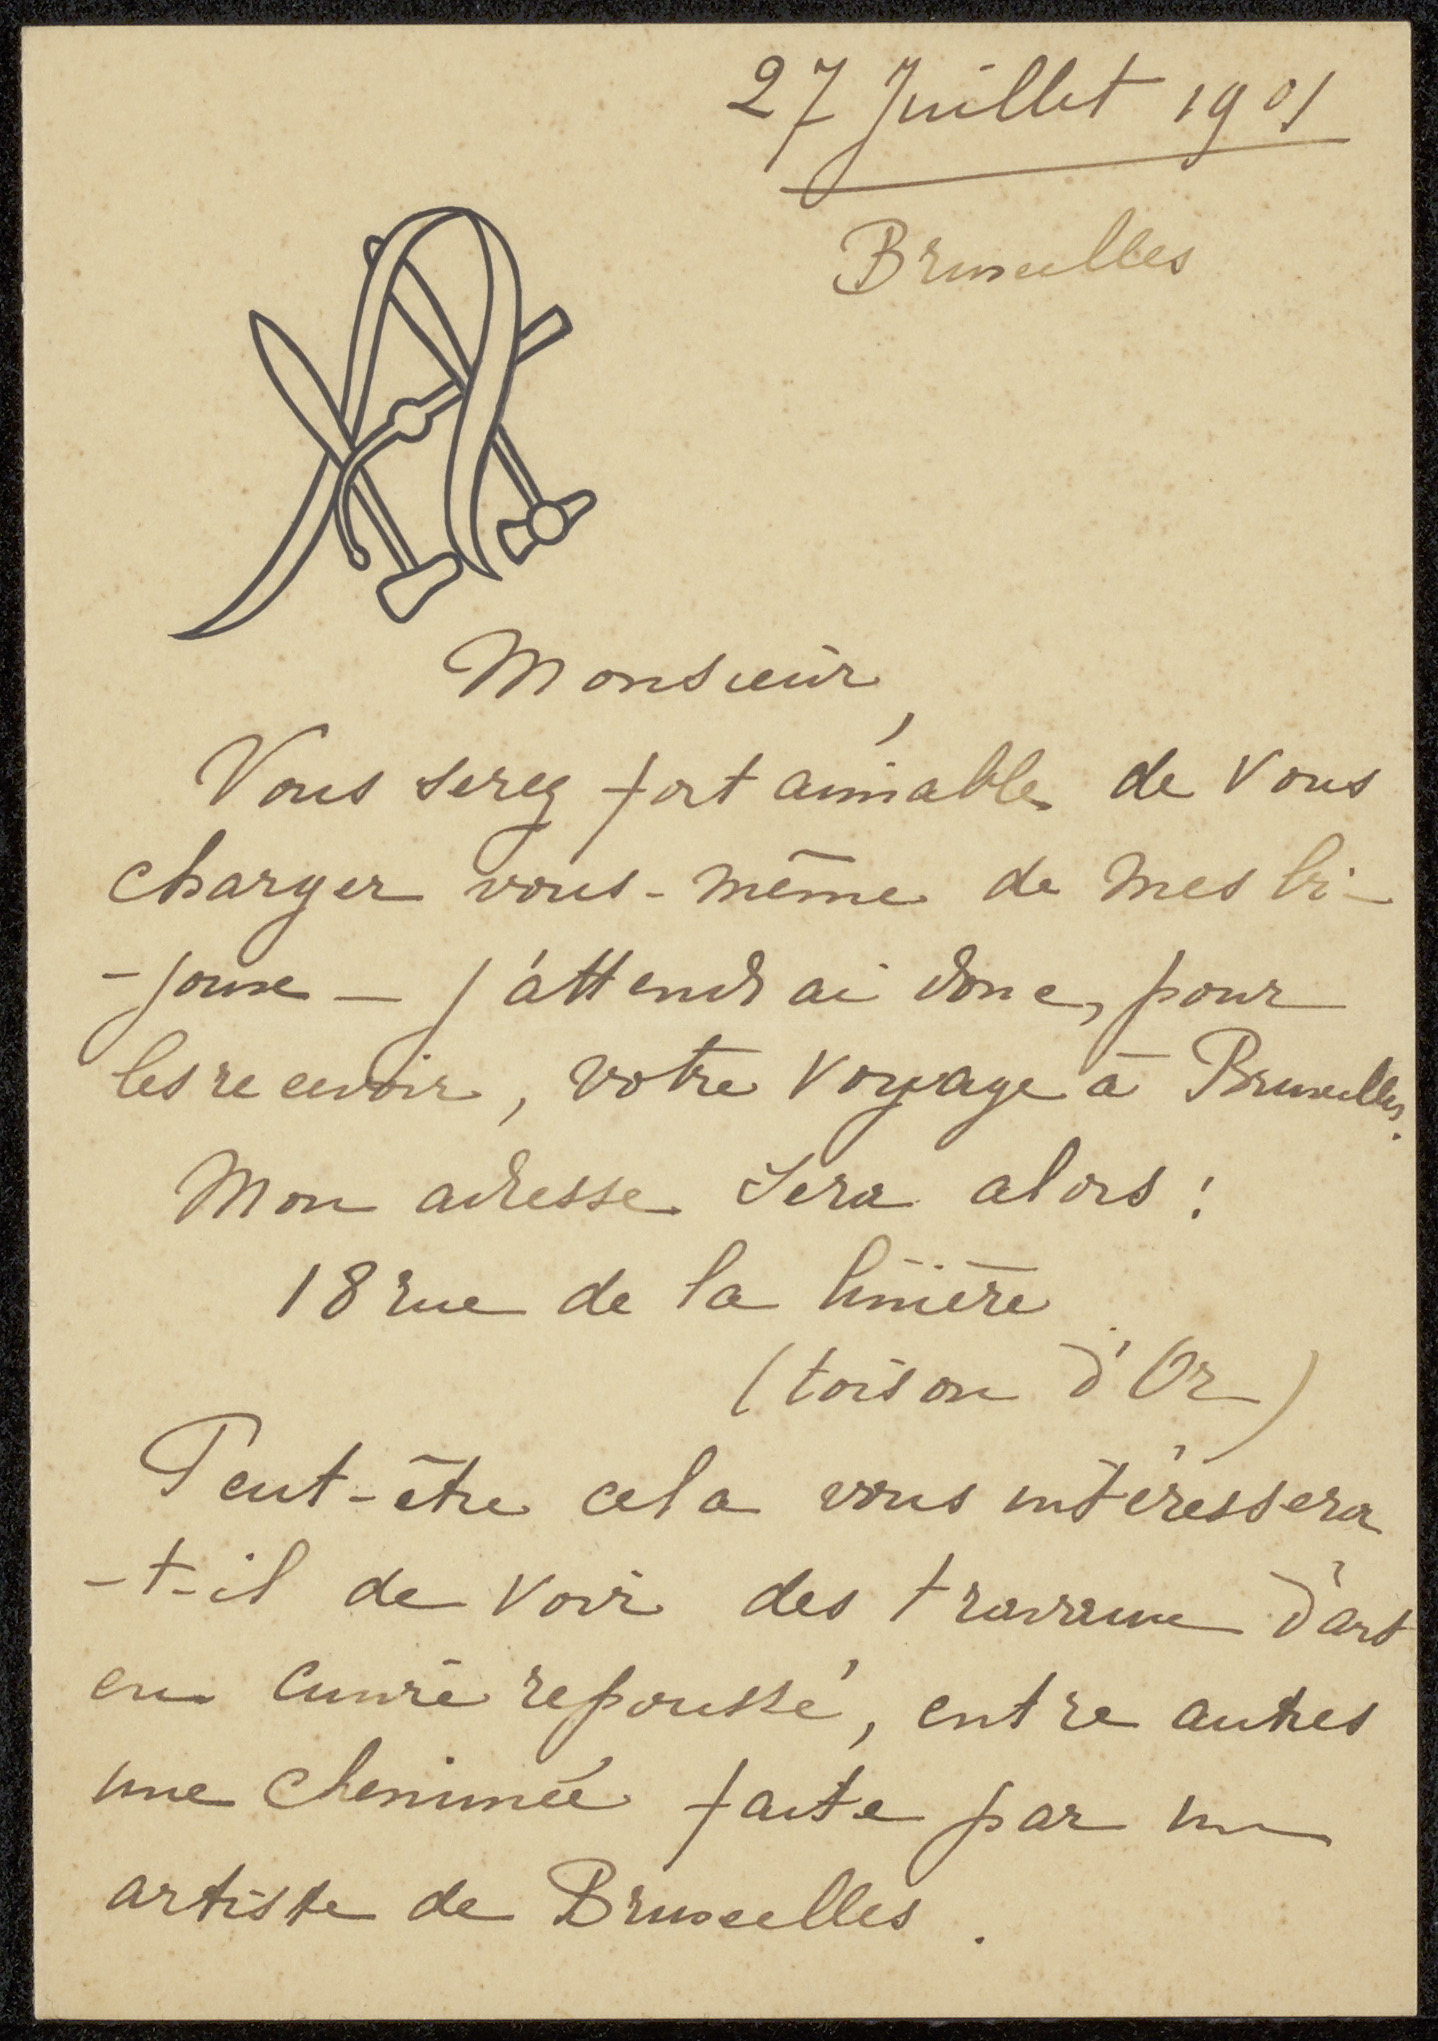 27 Juillet 1901
Bruxelles
Monsieur,
Vous serez fort aimable de vous
charger vous-même de mes bi-
-joux — j'attendrai donc, pour
les recevoir, votre voyage à Bruxelles.
Mon adresse sera alors :
18 rue de la linière
(toison d'Or)
Peut-être cela vous intéressera
-t-il de voir des travaux d'art
en cuivre repoussé, entre autres
une cheminée faite par un
artiste de Bruxelles.